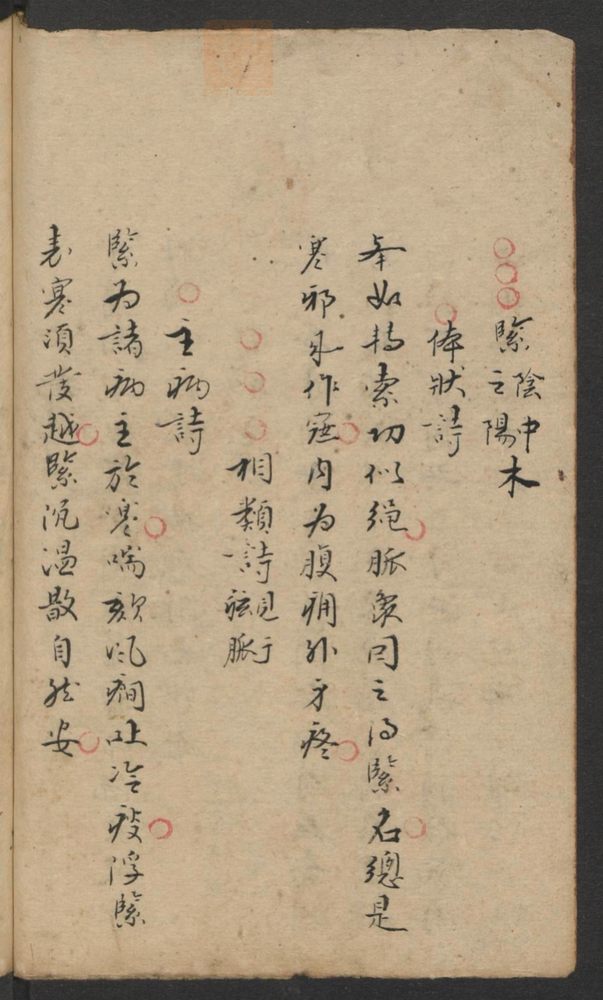 緊陰中之陽木
体狀詩
舉如轉索切似繩脈象因之得緊名總是
寒邪来作寇內为腹痛外身疼
相類詩見于弦脈
主病詩
緊为諸病主於寒喘欬風癇吐冷痰浮緊
表寒須發越緊沉温散自然安